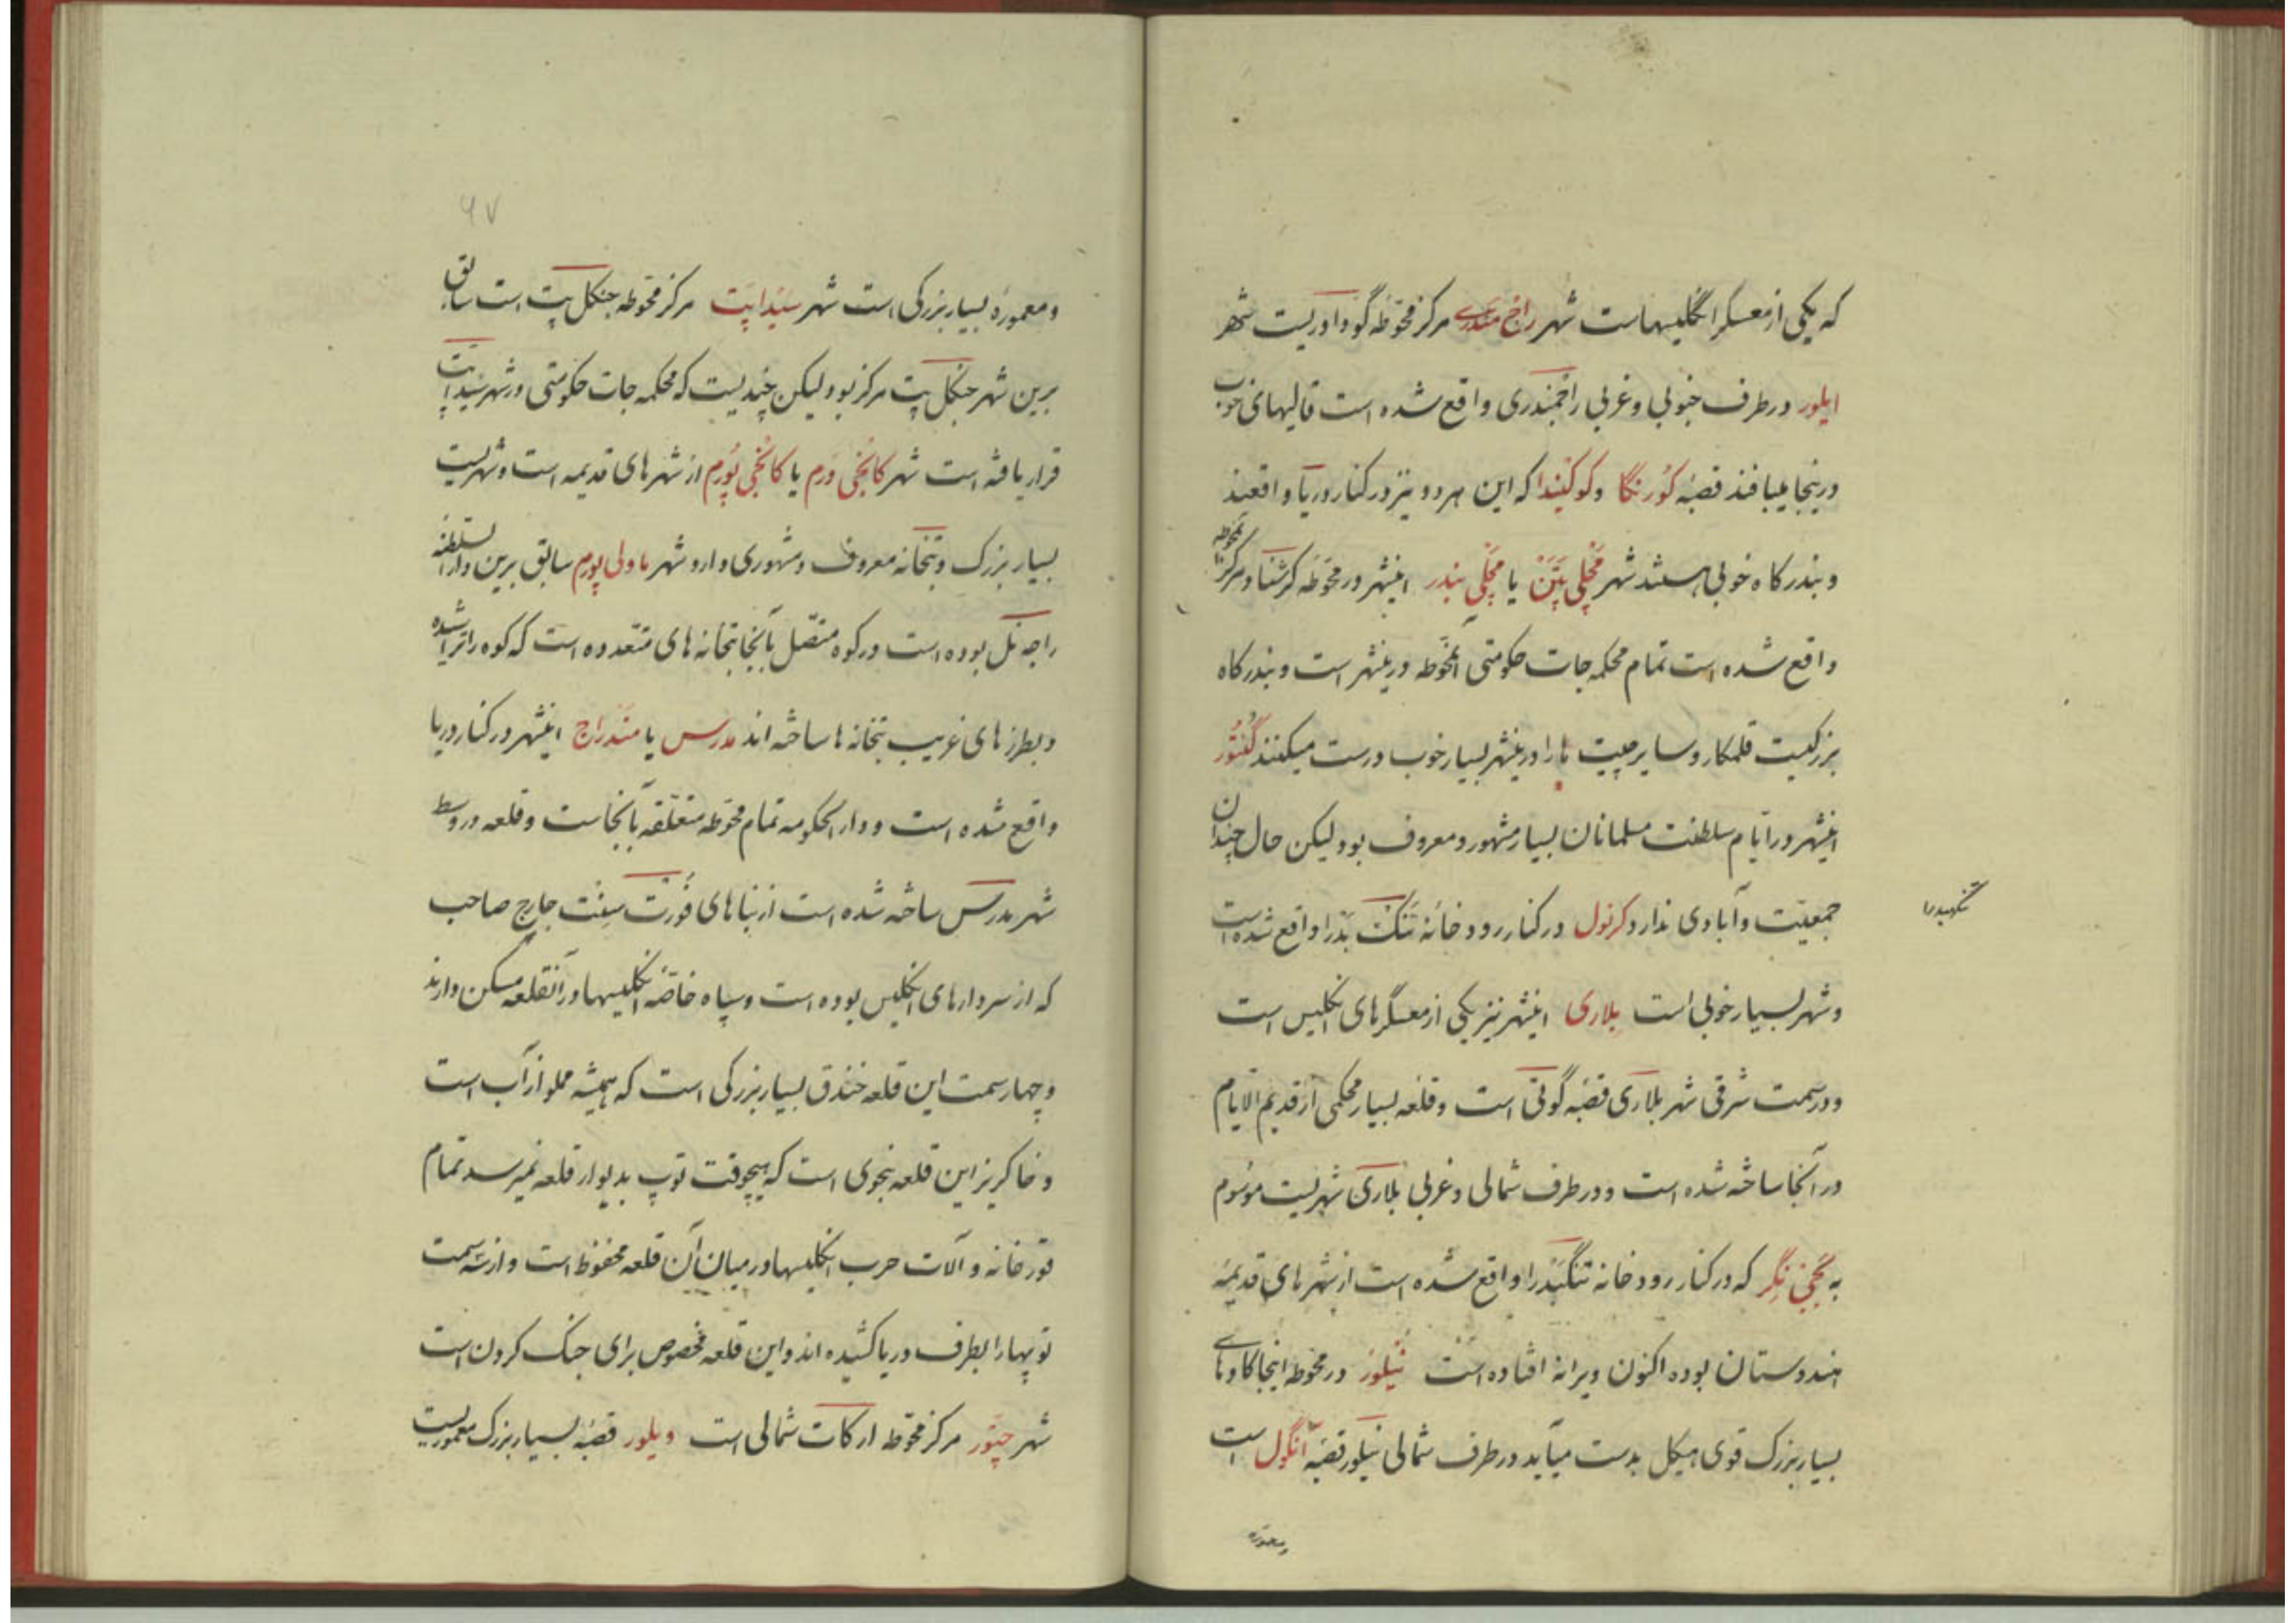 که یکی از معسکر انگلیسهاست شهر راج مندری مرکز محوّطه گوداوریست شهر
ایلور در طرف جنوبی و غربی راجمندری واقع شده است قالیهای خوب
درینجا میبافند قصبّه کورنگا و کوکنیدا که این هر دو نیز در کنار دریا واقعند
و بندرگاه خوبی هستند شهر مچلی پتن یا مچلی بندر اینشهر در محوّطه کرشنا و مرکز آنمحوطه
واقع شده است تمام محکمه جات حکومتی آنمحوّطه درینشهر است و بندرگاه
بزرگیست قلمکار و سایر چیت ها را درینشهر بسیار خوب درست میکنند گنتور
اینشهر در ایّام سلطنت مسلمانان بسیار مشهور و معروف بود لیکن حال چندان
جمعیّت و آبادی ندارد کرنول در کنار رودخانهٔ تنگ بدرا واقع شده است
تنگهبدرا
و شهر بسیار خوبی است بلاری اینشهر نیز یکی از معسگرهای انگلیس است
و در سمت شرقی شهر بلاری قصبه گوتی است و قلعه بسیار محکمی از قدیم الایام
در آنجا ساخته شده است و در طرف شمالی و غربی بلاری شهریست موسوم
به گجنی نگر که در کنار رودخانه تنگبدرا واقع شده است از شهرهای قدیمهٔ
هندوستان بوده اکنون ویرانه افتاده است نیلور در محوطه اینجا کاوهای
بسیار بزرگ قوی هیکل بدست میآید در طرف شمالی نیلور قصبه آنگول است
ومعمورهٔ
۶۷
و معمورهٔ بسیار بزرکی است شهر سیداپت مرکز محوطه جنکل پت است سابق
برین شهر جنکل پت مرکز بود لیکن چندیست که محکمه جات حکومتی در شهر سیداپت
قرار یافته است شهر کانجی ورم یا کانجی پورم از شهرهای قدیمه است و شهریست
بسیار بزرک و بتخانه معروف و مشهوری دارد شهر ماولی پورم سابق برین دارالسلطنه
راجه نل بوده است در کوه متصل بآنجا بتخانه های متعدده است که کوه را تراشیده
و بطرزهای غریب بتخانه ها ساخته اند مدرس یا مندراج اینشهر در کنار دریا
واقع شده است و دارالحکومه تمام محوّطه متعلّقه بآنجاست و قلعه در وسط
شهر مدرس ساخته شده است از بناهای فورت سنت جارج صاحب
که از سردارهای انکلیس بوده است و سپاه خاصّه انکلیسها در آنقلعه مسکن دارند
و چهار سمت این قلعه خندق بسیار بزرکی است که همیشه مملو از آب است
و خاکریز این قلعه بنحوی است که هیچوقت توپ بدیوار قلعه نمیرسد تمام
قورخانه و آلات حرب انکلیسها در میان آن قلعه محفوظ است و از سه سمت
توپها را بطرف دریا کشیده اند و این قلعه مخصوص برای جنک کردن است
شهر چتور مرکز محوّطه ارکات شمالی است ویلور قصبّه بسیار بزرک معموریست